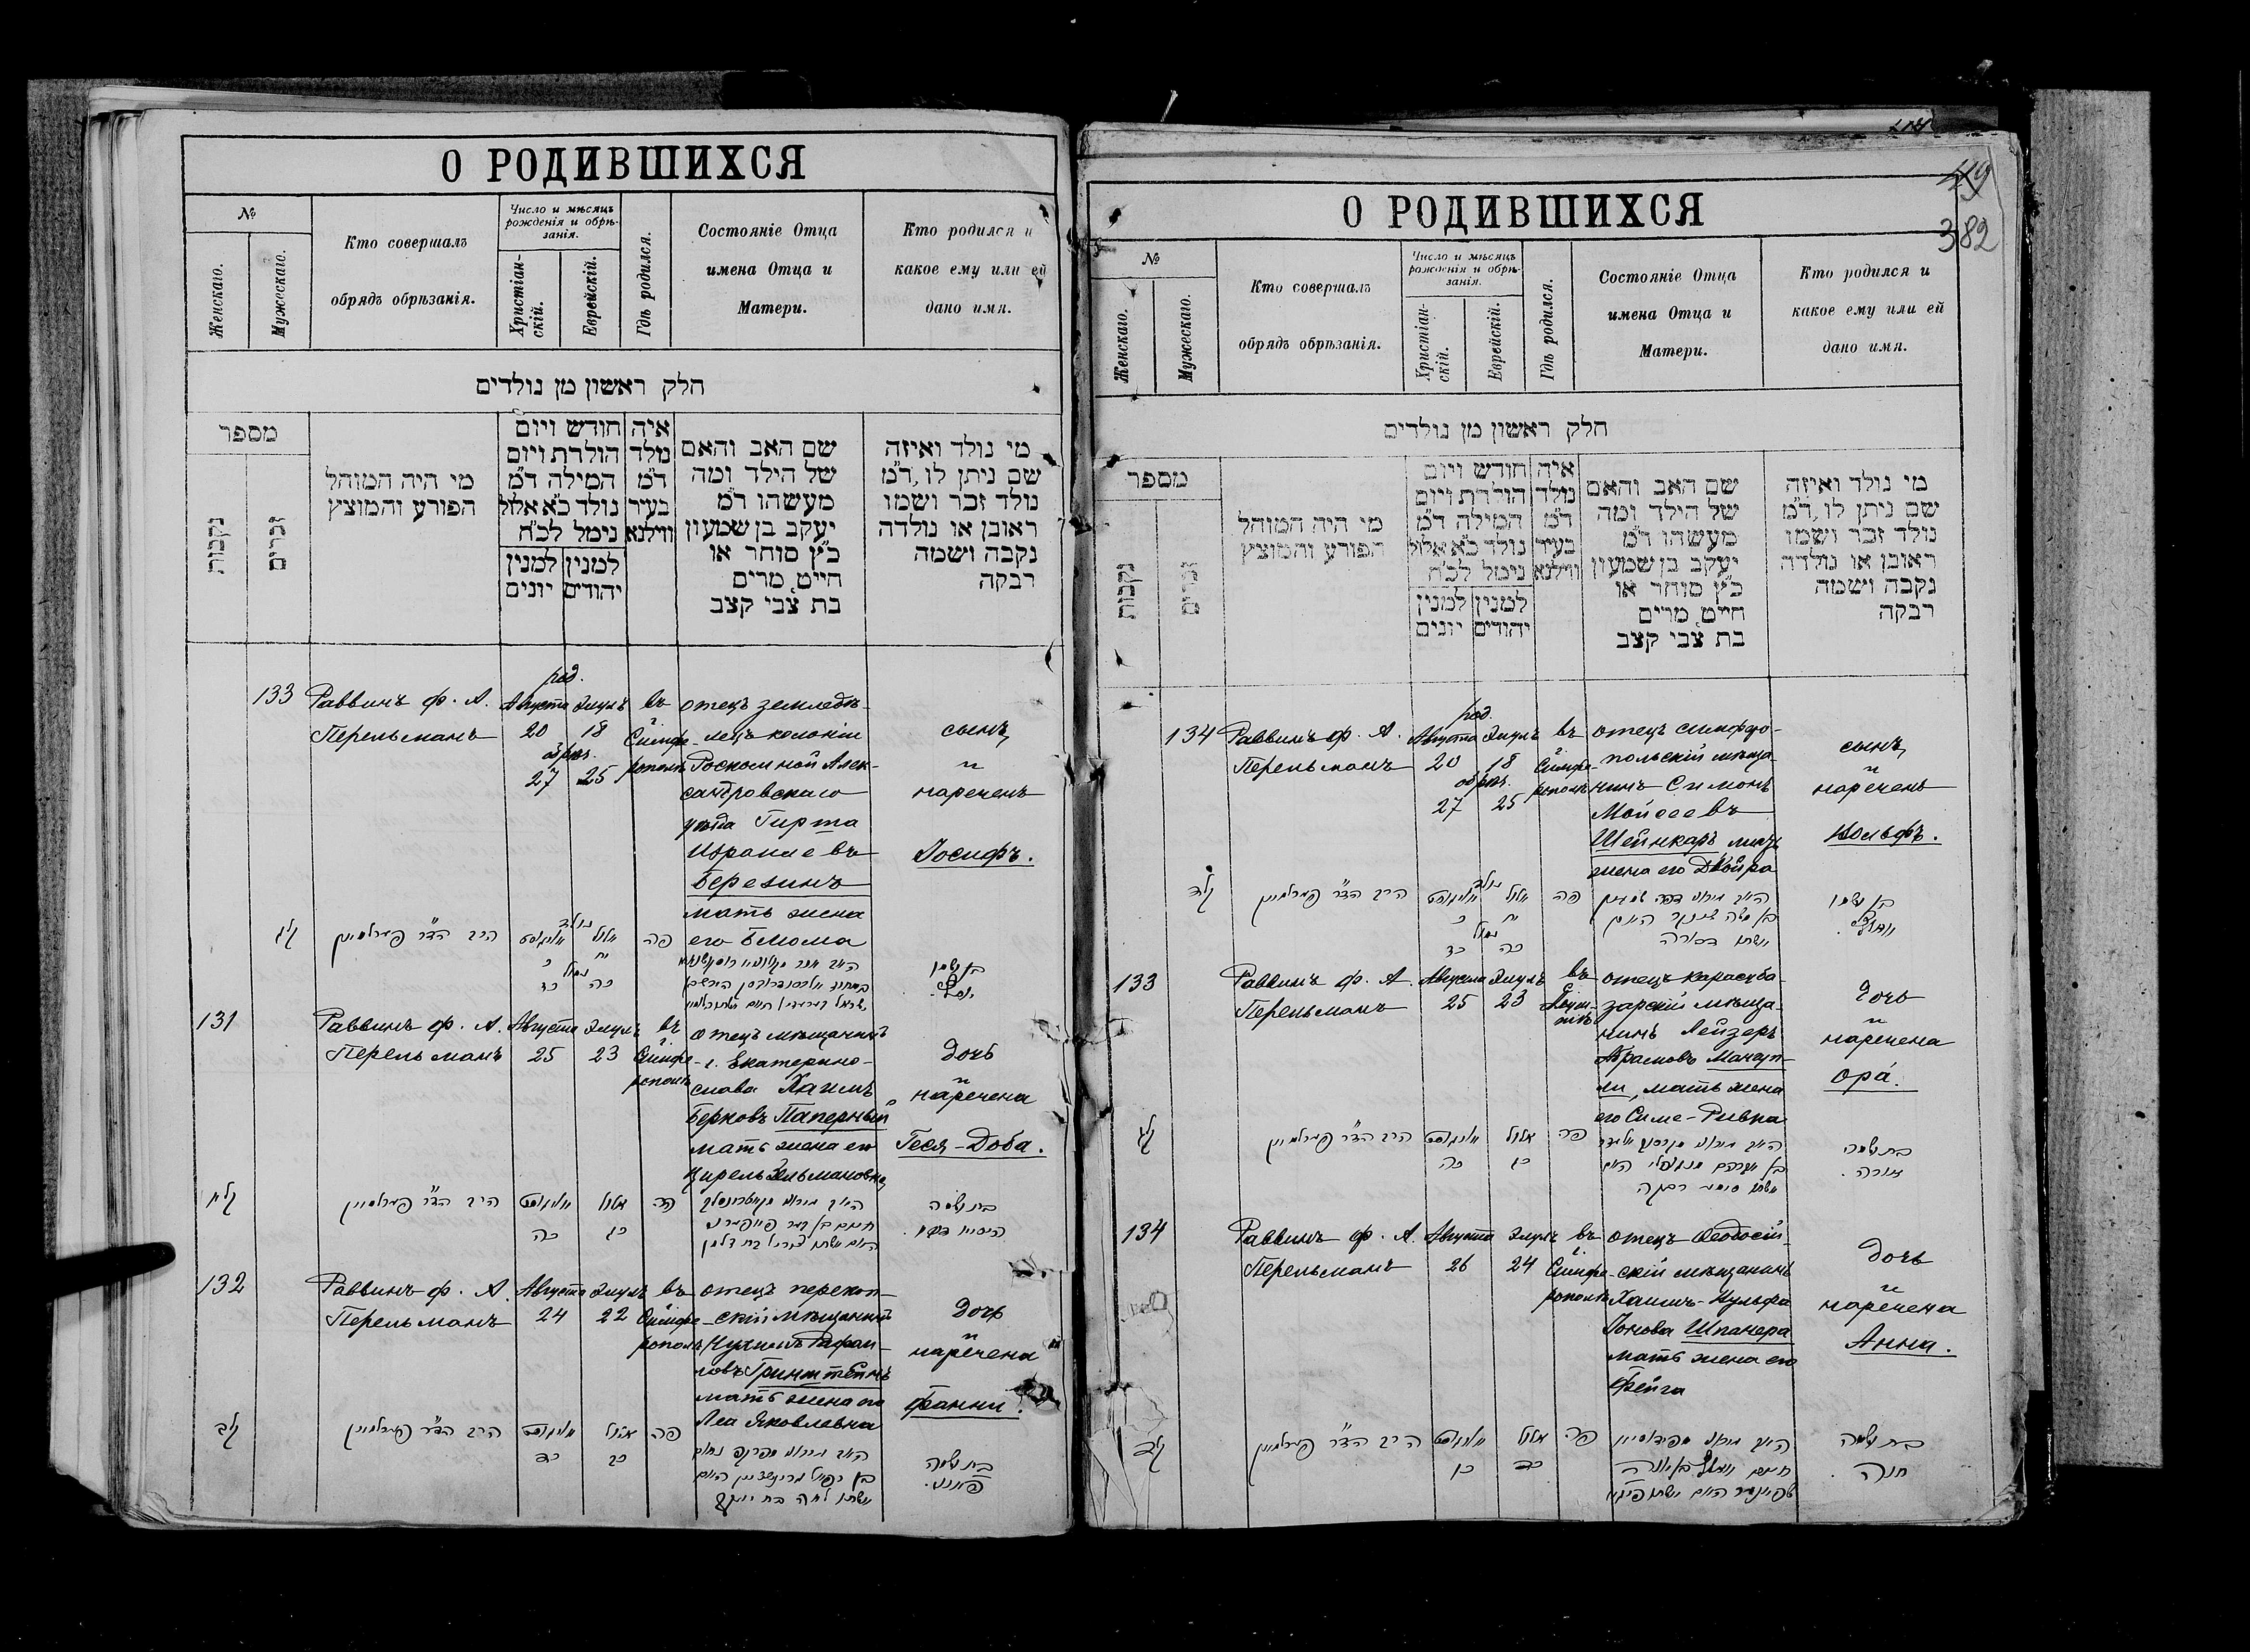 О РОДИВШИХСЯ
№
Женскаго.
Мужескаго.
Кто совершалъ
обрядъ обрѣзанія.
Число и мѣсяцъ
рожденія и обрѣ-
занія.
Христіан-
скій.
Еврейскій.
Гдѣ родился.
Состояніе Отца
имена Отца и
Матери.
Кто родился и
какое ему или ей
дано имя.
חלק ראשון מן נולדים
מספר
נקבות
זכרים
מי היה המוהל
הפורע והמוצץ
חודש ויום
הולדת ויום
המילה ד״מ
נולד כ״א אלול
נימל לכ״ח
למנין למנין
יהודים יונים
איה
נולד
ד״מ
בעיר
ווילנא
שם האב והאם
של הילד ומה
מעשהו ד״מ
יעקב בן שמעון
כ״ץ סוחר או
חייט, מרים
בת צבי קצב
מי נולד ואיזה
שם ניתן לו, ד״מ
נולד זכר ושמו
ראובן או נולדה
נקבה ושמה
רבקה
133
Раввинъ ф. А.
Перельманъ
род.
Августа Элулъ
20 18
обрѣз.
27 25
въ
Симфе-
рополѣ
отецъ земледѣ-
лецъ колоніи
Роскошной Алек-
сандровскаго
уѣзда Гирша
Израилевъ
Березинъ
мать жена
его Блюма
сынъ
и
нареченъ
Іосифъ.
קלג
הרב הד״ר פערלמאן
נולד
אלול אויגוסט
יח כ
נמול
כה כז
פה
131
Раввинъ ф. А.
Перельманъ
Августа Элулъ
25 23
въ
Симфе-
рополѣ
отецъ мѣщанинъ
г. Екатерино-
слава Хаимъ
Берковъ Паперный
мать жена его
Цирель Зельмановна
дочь
и
наречена
Геся-Доба.
קלא
הרב הד״ר פערלמאן
אלול אויגוסט
כג כה
פה
132
Раввинъ ф. А.
Перельманъ
Августа Элулъ
24 22
въ
Симфе-
рополѣ
отецъ перекоп-
скій мѣщанинъ
Нухимъ Рафаи-
ловъ Гринштейнъ
мать жена его
Леа Яковлевна
дочь
и
наречена
Фанни.
קלב
הרב הד״ר פערלמאן
אלול אויגוסט
כב כד
פה
49
382
О РОДИВШИХСЯ
№
Женскаго.
Мужескаго.
Кто совершалъ
обрядъ обрѣзанія.
Число и мѣсяцъ
рожденія и обрѣ-
занія.
Христіан-
скій.
Еврейскій.
Гдѣ родился.
Состояніе Отца
имена Отца и
Матери.
Кто родился и
какое ему или ей
дано имя.
חלק ראשון מן נולדים
מספר
נקבות
זכרים
מי היה המוהל
הפורע והמוצץ
חודש ויום
הולדת ויום
המילה ד״מ
נולד כ״א אלול
נימל לכ״ח
למנין למנין
יהודים יונים
איה
נולד
ד״מ
בעיר
ווילנא
שם האב והאם
של הילד ומה
מעשהו ד״מ
יעקב בן שמעון
כ״ץ סוחר או
חייט, מרים
בת צבי קצב
מי נולד ואיזה
שם ניתן לו, ד״מ
נולד זכר ושמו
ראובן או נולדה
נקבה ושמה
רבקה
134
Раввинъ ф. А.
Перельманъ
род.
Августа Элулъ
20 18
обрѣз.
27 25
въ
Симфе-
рополѣ
отецъ симферо-
польскій мѣща-
нинъ Симонъ
Мойсеевъ
Шейнкаръ мать
жена его Двойра
сынъ
и
нареченъ
Вольфъ.
קלד
הרב הד״ר פערלמאן
נולד
אלול אויגוסט
יח כ
נמול
כה כז
פה
133
Раввинъ ф. А.
Перельманъ
Августа Элулъ
25 23
въ
отецъ карасуба-
зарскій мѣща-
нинъ Лейзеръ
Абрамовъ Мангуп-
ли, мать жена
его Симе-Ривка
дочь
и
наречена
Ора.
קלג
הרב הד״ר פערלמאן
אלול אויגוסט
כג כה
פה
134
Раввинъ ф. А.
Перельманъ
Августа Элулъ
26 24
въ
Симфе-
рополѣ
отецъ Ѳеодосій-
скій мѣщанинъ
Хаимъ-Вульфа
Іонова Шпанера
мать жена его
Фейга
дочь
и
наречена
Анна.
קלד
הרב הד״ר פערלמאן
אלול אויגוסט
כד כו
פה
בת ושמה
חנה.